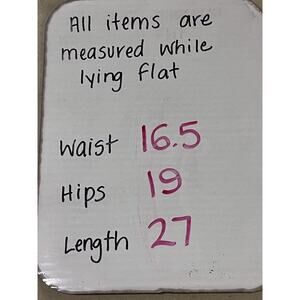 All items are
measured while
lying flat
Waist 16.5
Hips 19
Length 27